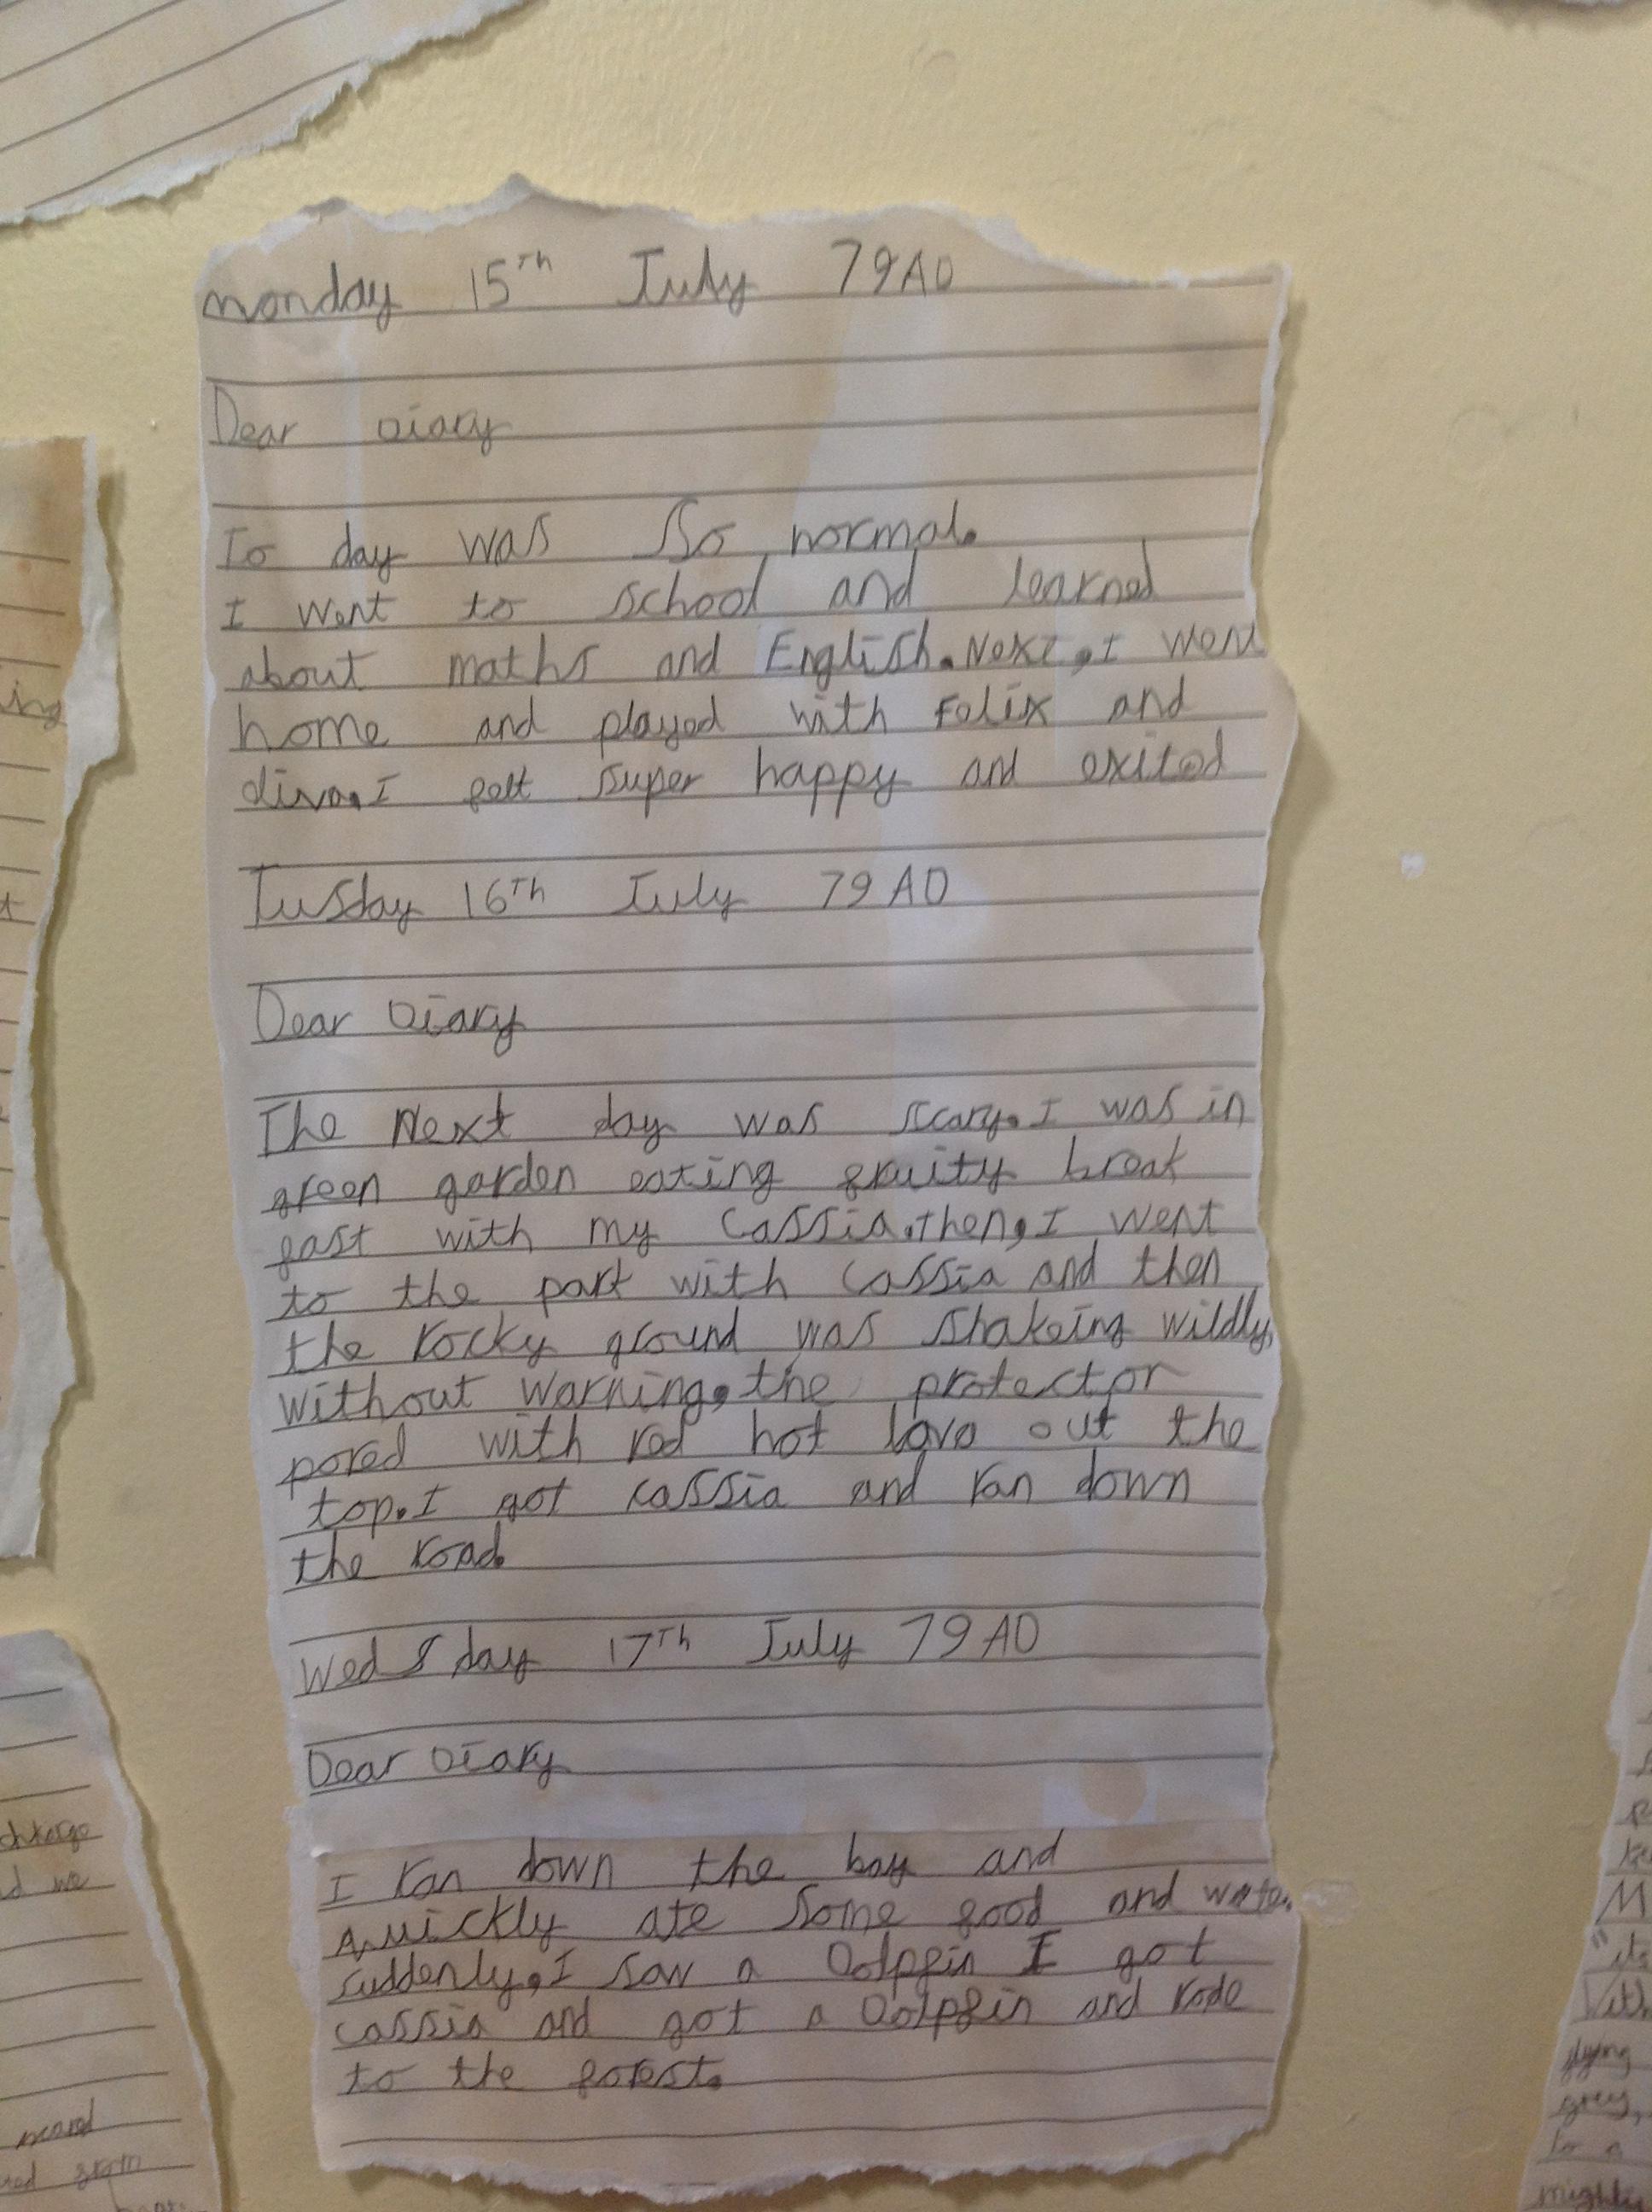 monday 15Th July 79AD
Dear Diary
To day was so normal.
I went to school and learned
about maths and English. Next, I went
home and played with Felix and
diva. I felt super happy and exited
Tusday 16Th July 79AD
Dear Diary
The Next day was scary. I was in
green garden eating fruity break
fast with my Cassia. Then, I went
to the park with Cassia and then
the rocky ground was shakeing wildly,
without warning, the protector
pored with red hot lava out the
top. I got cassia and ran down
the road.
Wedsday 17Th July 79AD
Dear Diary
I ran down the bay and
quickly ate some food and
suddenly, I saw a Dolpfin I got
cassia and got a Dolpfin and rode
to the forest.
ing
d we
flying
grey,
for a